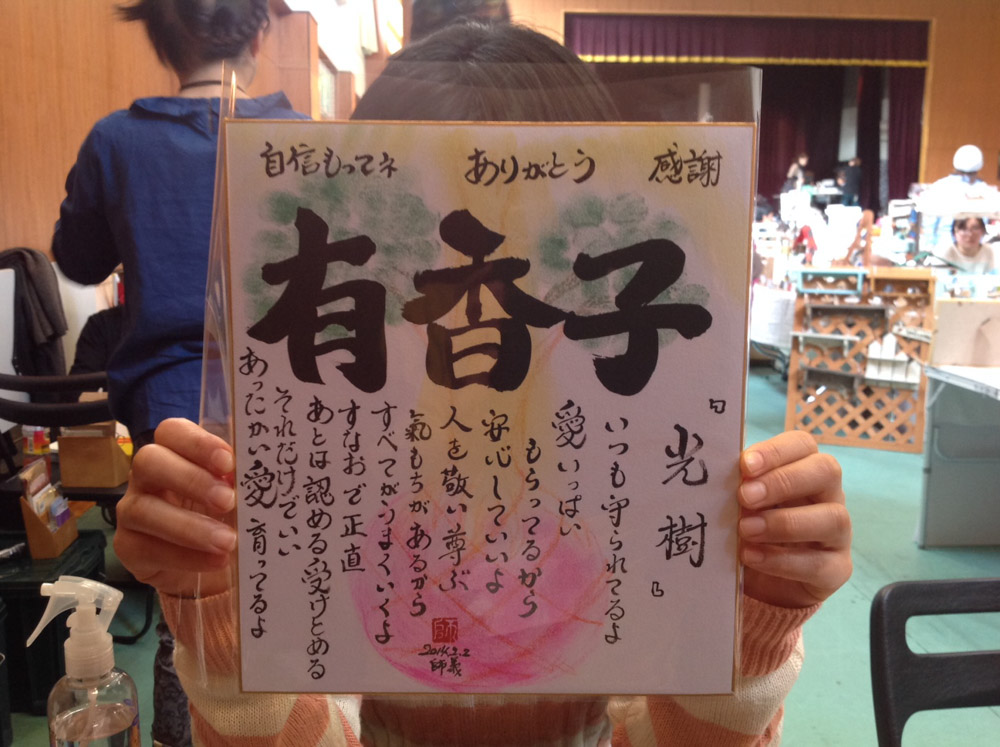 自信もってネ　ありがとう　感謝
有香子
『光樹』
いつも守られてるよ
愛いっぱい
もらってるから
安心していいよ
人を敬い尊ぶ
氣もちがあるから
すべてがうまくいくよ
すなおで正直
あとは認める受けとめる
それだけでいい
あったかい愛育ってるよ
2014.2.2
師義